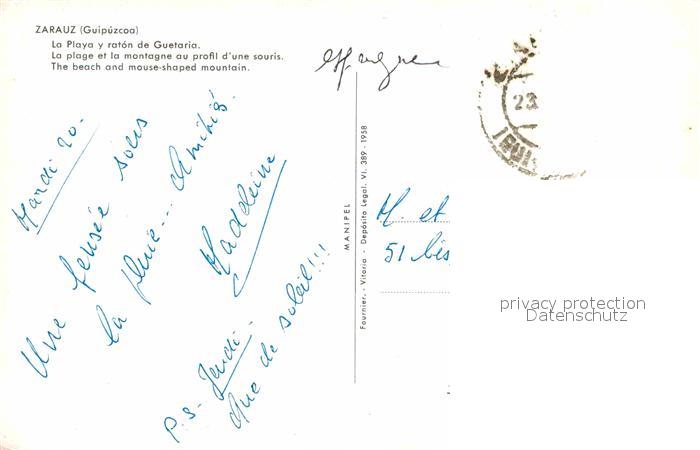 ZARAUZ (Guipúzcoa)
La Playa y ratón de Guetaria.
La plage et la montagne au profil d'une souris.
The beach and mouse-shaped mountain.
Mardi 20.
Une pensée sous
la pluie... Amitiés.
Madeleine
P.S. Jeudi.
Que de soleil!!!
MANIPEL
Fournier. - Vitoria - Depósito Legal. VI. 389 - 1958
Espagne
23.
M. et
51 bis
privacy protection
Datenschutz